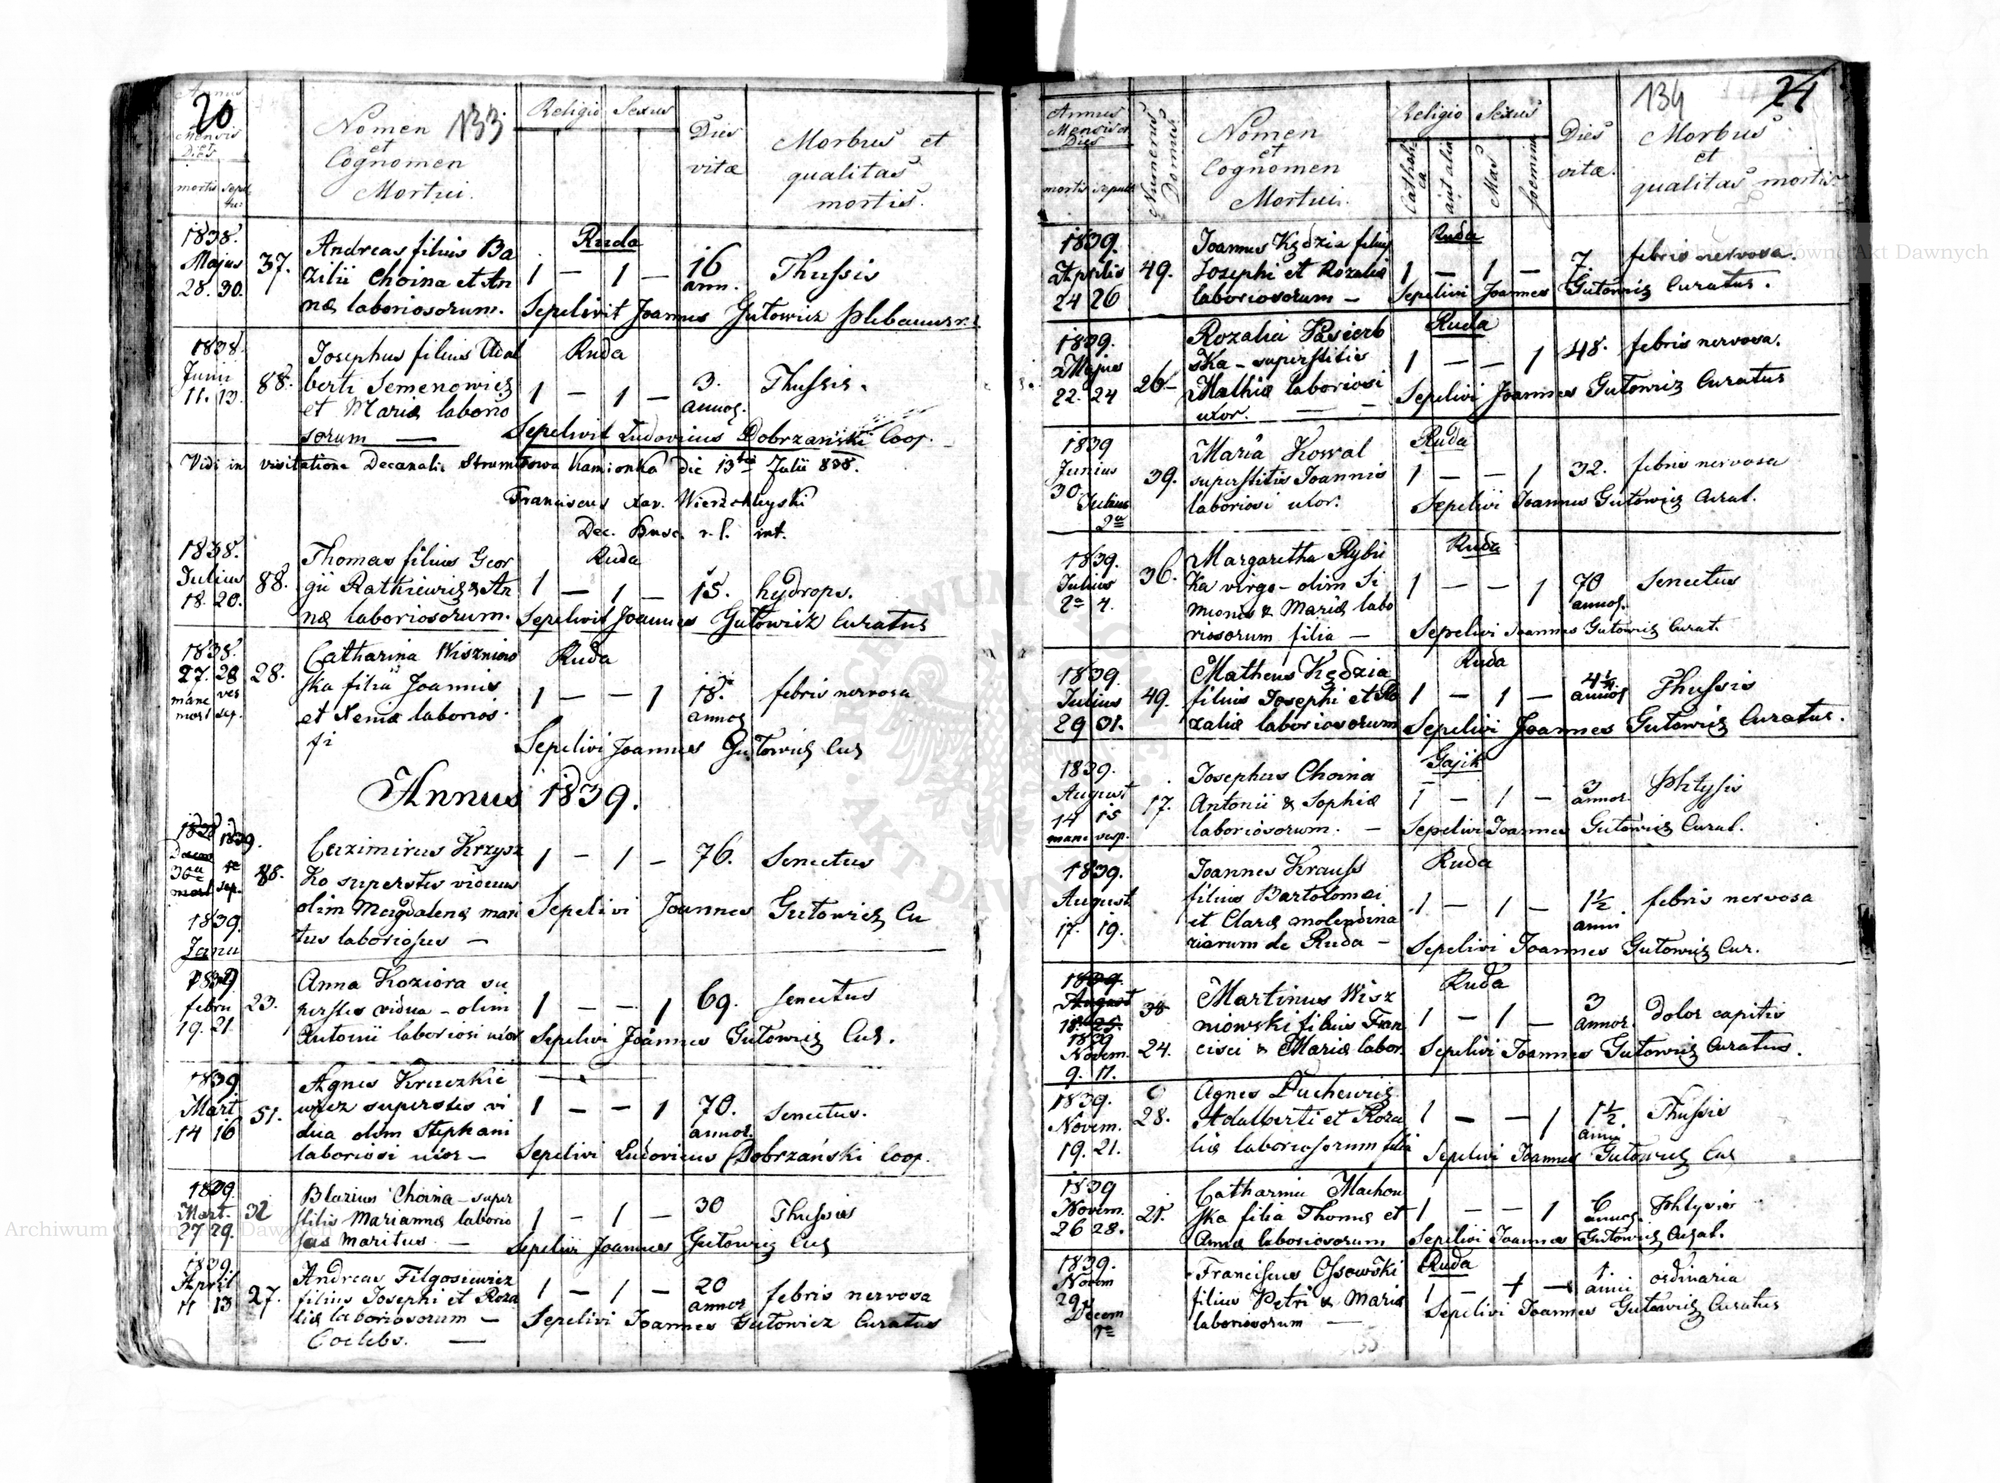 20
133
Annus
Mensis
Dies
mortis sepul
turæ
Nomen
et
Cognomen
Mortui.
Religio Sexus
Dies
vitæ
Morbus et
qualitas
mortis.
1838.
Majus
28. 30.
37.
Andreas filius Ba
zilii Choina et An
næ laboriosorum.
Ruda
1 — 1 —
16
ann.
Thussis
Sepelivit Joannes Gutowicz Plebanus
1838.
Juni
11. 13.
88.
Josephus filius Adal
berti Semenowicz
et Mariæ laborio
sorum —
Ruda
1 — 1 —
3.
annos.
Thussis.
Sepelivit Ludovicus Dobrzański Coop.
Vidi in visitatione Decanali Strumitowa Kamionka die 13tia Julii 838.
Franciscus Xav. Wierzchleyski
Dec. Busc. r. l. int.
1838.
Julius
18. 20.
88.
Thomas filius Geor
gii Rathiewicz & An
næ laboriosorum.
Ruda
1 — 1 —
15.
hydrops.
Sepelivit Joannes Gutowicz Curatus
1838.
27. 28
mane ves
mort sep.
28.
Catharina Wisznio
ska filia Joannis
et Xeniæ laborios.
Ruda
1 — — 1
18.
annos
febris nervosa
Sepelivi Joannes Gutowicz Cur
Annus 1839.
1838 1839.
30a
mort sep.
88.
Cazimirus Krzysz
ko superstes viduus
olim Magdalenæ mari
tus laboriosus —
1 — 1 —
76.
Senectus
Sepelivi Joannes Gutowicz Cu
1839
Janu
1839
febru
19. 21.
23.
Anna Koziora su
perstes vidua — olim
Antonii laboriosi uxor
1 — — 1
69.
senectus
Sepelivi Joannes Gutowicz Cur.
1839
Mart
14 16
51.
Agnes Kruczkie
wicz superstes vi
dua olim Stephani
laboriosi uxor —
1 — — 1
70.
annor.
Senectus.
Sepelivi Ludovicus Dobrzański Coop.
1839.
Mart.
27 29.
32
Blazius Choina — super
stitis Mariannæ laborio
sus maritus —
1 — 1 —
30
Thussis
Sepelivi Joannes Gutowicz Cur
1839.
April
11 13
27.
Andreas Filgosiewicz
filius Josephi et Roza
liæ laboriosorum —
Coelebs. —
1 — 1 —
20
annor
febris nervosa
Sepelivi Joannes Gutowicz Curatus
134
24
Annus
Mensis et
Dies
mortis sepult
Numerus
Domus
Nomen
et
Cognomen
Mortui.
Religio Sexus
Catholi
ca
aut alia
Mas
foemina
Dies
vitæ.
Morbus
et
qualitas mortis.
1839.
Aprilis
24 26
49.
Joannes Kędzia filius
Josephi et Rozaliæ
laboriosorum —
Ruda
1 — 1 —
7
febris nervosa.
Sepelivi Joannes Gutowicz Curatus.
1839.
Majus
22. 24
26
Rozalia Pasierb
ska — superstitis
Mathiæ laboriosi
uxor. — —
Ruda
1 — — 1
48.
febris nervosa.
Sepelivi Joannes Gutowicz Curatus
1839
Junius
30.
Julius
2a
39.
Maria Kowal
superstitis Joannis
laboriosi uxor.
Ruda
1 — — 1
32.
febris nervosa
Sepelivi Joannes Gutowicz Curat.
1839.
Julius
2a 4.
36.
Margaretha Rybic
ka virgo — olim Si
mionis & Mariæ labo
riosorum filia —
Ruda
1 — — 1
70
annos.
Senectus
Sepelivi Joannes Gutowicz Curat.
1839
Julius
29 31.
49.
Matheus Kędzia
filius Josephi et Ro
zaliæ laboriosorum
Ruda
1 — 1 —
4½
annos
Thussis
Sepelivi Joannes Gutowicz Curatus.
1839.
August
14 15
mane vesp.
17.
Josephus Choina
Antonii & Sophiæ
laboriosorum. —
Gajik
1 — 1 —
3
annor.
Phtysis
Sepelivi Joannes Gutowicz Curat.
1839.
August
17. 19.
Joannes Krauss
filius Bartolomei
et Claræ molendina
riarum de Ruda —
Ruda
1 — 1 —
1½
anni
febris nervosa
Sepelivi Joannes Gutowicz Cur.
1839.
August
18. 25.
1839
Novem.
9. 11.
38
24.
Martinus Wisz
niowski filius Fran
cisci & Mariæ labor.
Ruda
1 — 1 —
3
annor.
dolor capitis
Sepelivi Joannes Gutowicz Curatus.
1839.
Novem.
19. 21.
28.
Agnes Puchewicz
Adalberti et Roza
liæ laboriosorum filia
1 — — 1
1½
anni
Thussis
Sepelivi Joannes Gutowicz Cur
1839
Novem.
26 28.
21.
Catharina Machow
ska filia Thomæ et
Annæ laboriosorum
1 — — 1
6
annos
Phtysis
Sepelivi Joannes Gutowicz Curat.
1839.
Novem
29
Decem
1a
Franciscus Ossowski
filius Petri & Mariæ
laboriosorum —
Ruda
1 — 1 —
1.
anni
ordinaria
Sepelivi Joannes Gutowicz Curatus
Archiwum Główne Akt Dawnych
ARCHIWUM GŁÓWNE AKT DAWNYCH